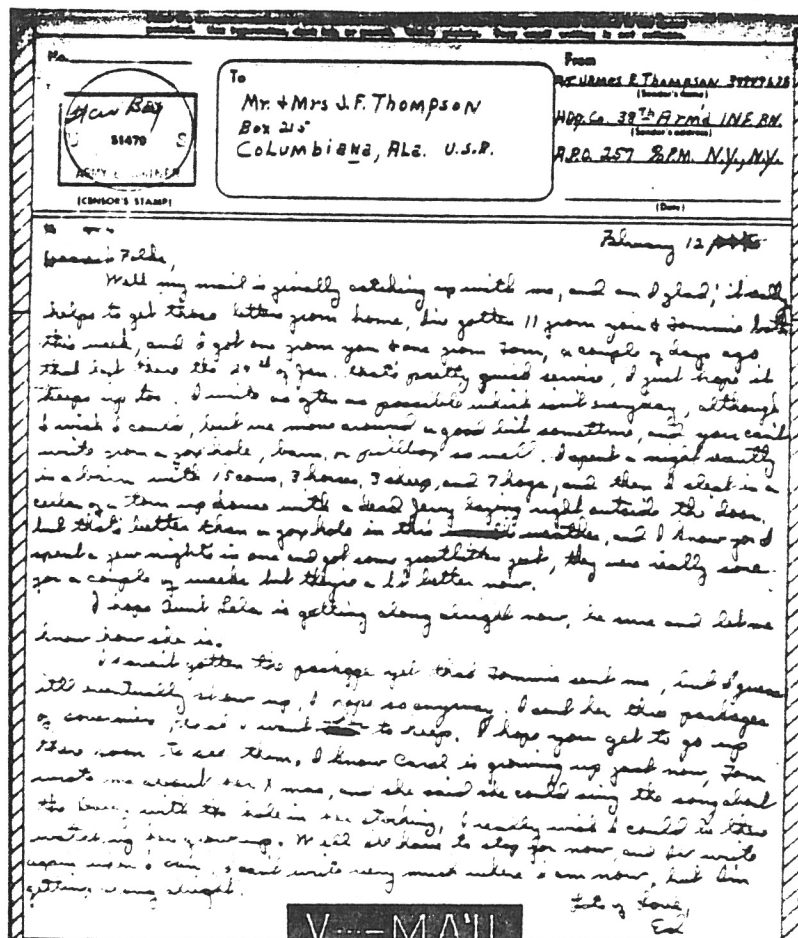 No.
To
Mr. & Mrs J.F. Thompson
Box 215
Columbiana, Ala. U.S.A.
From
James E Thompson
(Sender's name)
HDQ. Co. 38th Arm'd INF. BN.
(Sender's address)
A.P.O. 257 % P.M. N.Y., N.Y.
(Date)
51470
U S
ARMY EXAMINER
(CENSOR'S STAMP)
February 12
Folks,
Well my mail is finally catching up with me, and am I glad, it really
helps to get those letters from home, I've gotten 11 from you & Tommie both
this week, and I got one from you & one from Tom, a couple of days ago
that left there the 29th of Jan. that's pretty good service, I just hope it
keeps up too. I write as often as possible which isn't everyday, although
I wish I could, but we move around a good bit sometime, and you can't
write from a foxhole, barn, or pillbox so well. I spent a night recently
in a barn with 15 cows, 3 horses, 3 sheep, and 7 hogs, and then I slept in a
celler of a torn up house with a dead Jerry laying right outside the door,
but that's better than a foxhole in this weather, and I know you I
spent a few nights in one and got some frostbitten feet, they were really sore
for a couple of weeks but they're a lot better now.
I hope Aunt Lela is getting along alright now, be sure and let me
know how she is.
I haven't gotten the package yet that Tommie sent me, but I guess
it'll eventually show up, I hope so anyway. I sent her three packages
of souvenirs, that I want to keep. I hope you get to go up
there soon to see them. I know Carol is growing up fast now, Tom
wrote me about her Xmas, and she said she could sing the song about
the with the hole in her stocking, I really wish I could be there
watching her grow up. Well I'll have to stop for now, and I'll write
again when I can, I can't write very much where I am now, but I'm
getting along alright.
Lots of Love,
Ed
V---MAIL